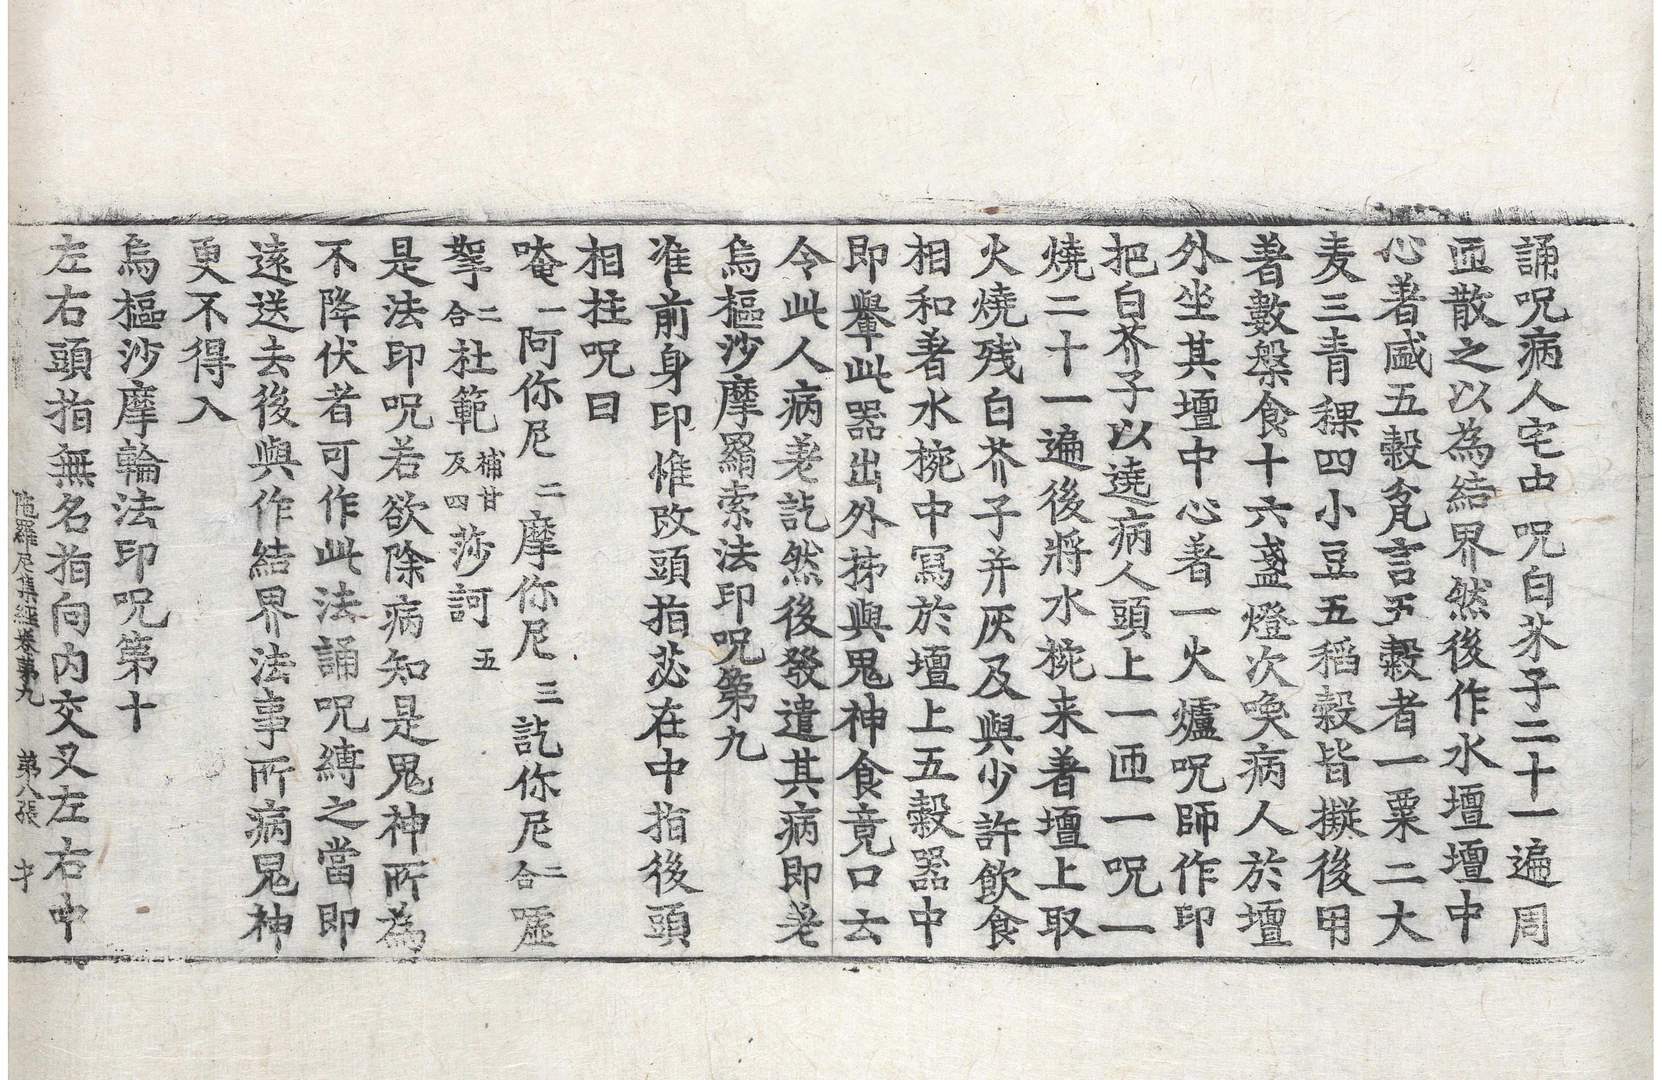 誦呪病人宅中呪白芥子二十一遍周
匝散之以為結界然後作水壇壇中
心著盛五穀瓫言五穀者一粟二大
麦三青稞四小豆五稻穀皆擬後用
著數槃食十六盞燈次喚病人於壇
外坐其壇中心著一火爐呪師作印
把白芥子以遶病人頭上一匝一呪一
燒二十一遍後將水椀来著壇上取
火燒残白芥子并灰及與少許飲食
相和著水椀中寫於壇上五穀器中
即轝此器出外捄與鬼神食竟口云
令此人病差訖然後發遣其病即差
烏樞沙摩羂索法印呪第九
准前身印惟改頭指苾在中指後頭
相拄呪曰
唵一阿你尼二摩你尼三訖你尼二合噁
拏二合社範補甘反四莎訶五
是法印呪若欲除病知是鬼神所為
不降伏者可作此法誦呪縛之當即
遠送去後與作結界法事所病鬼神
更不得入
烏樞沙摩輪法印呪第十
左右頭指無名指向内交叉左右中
陁羅尼集經卷第九　第八張　才